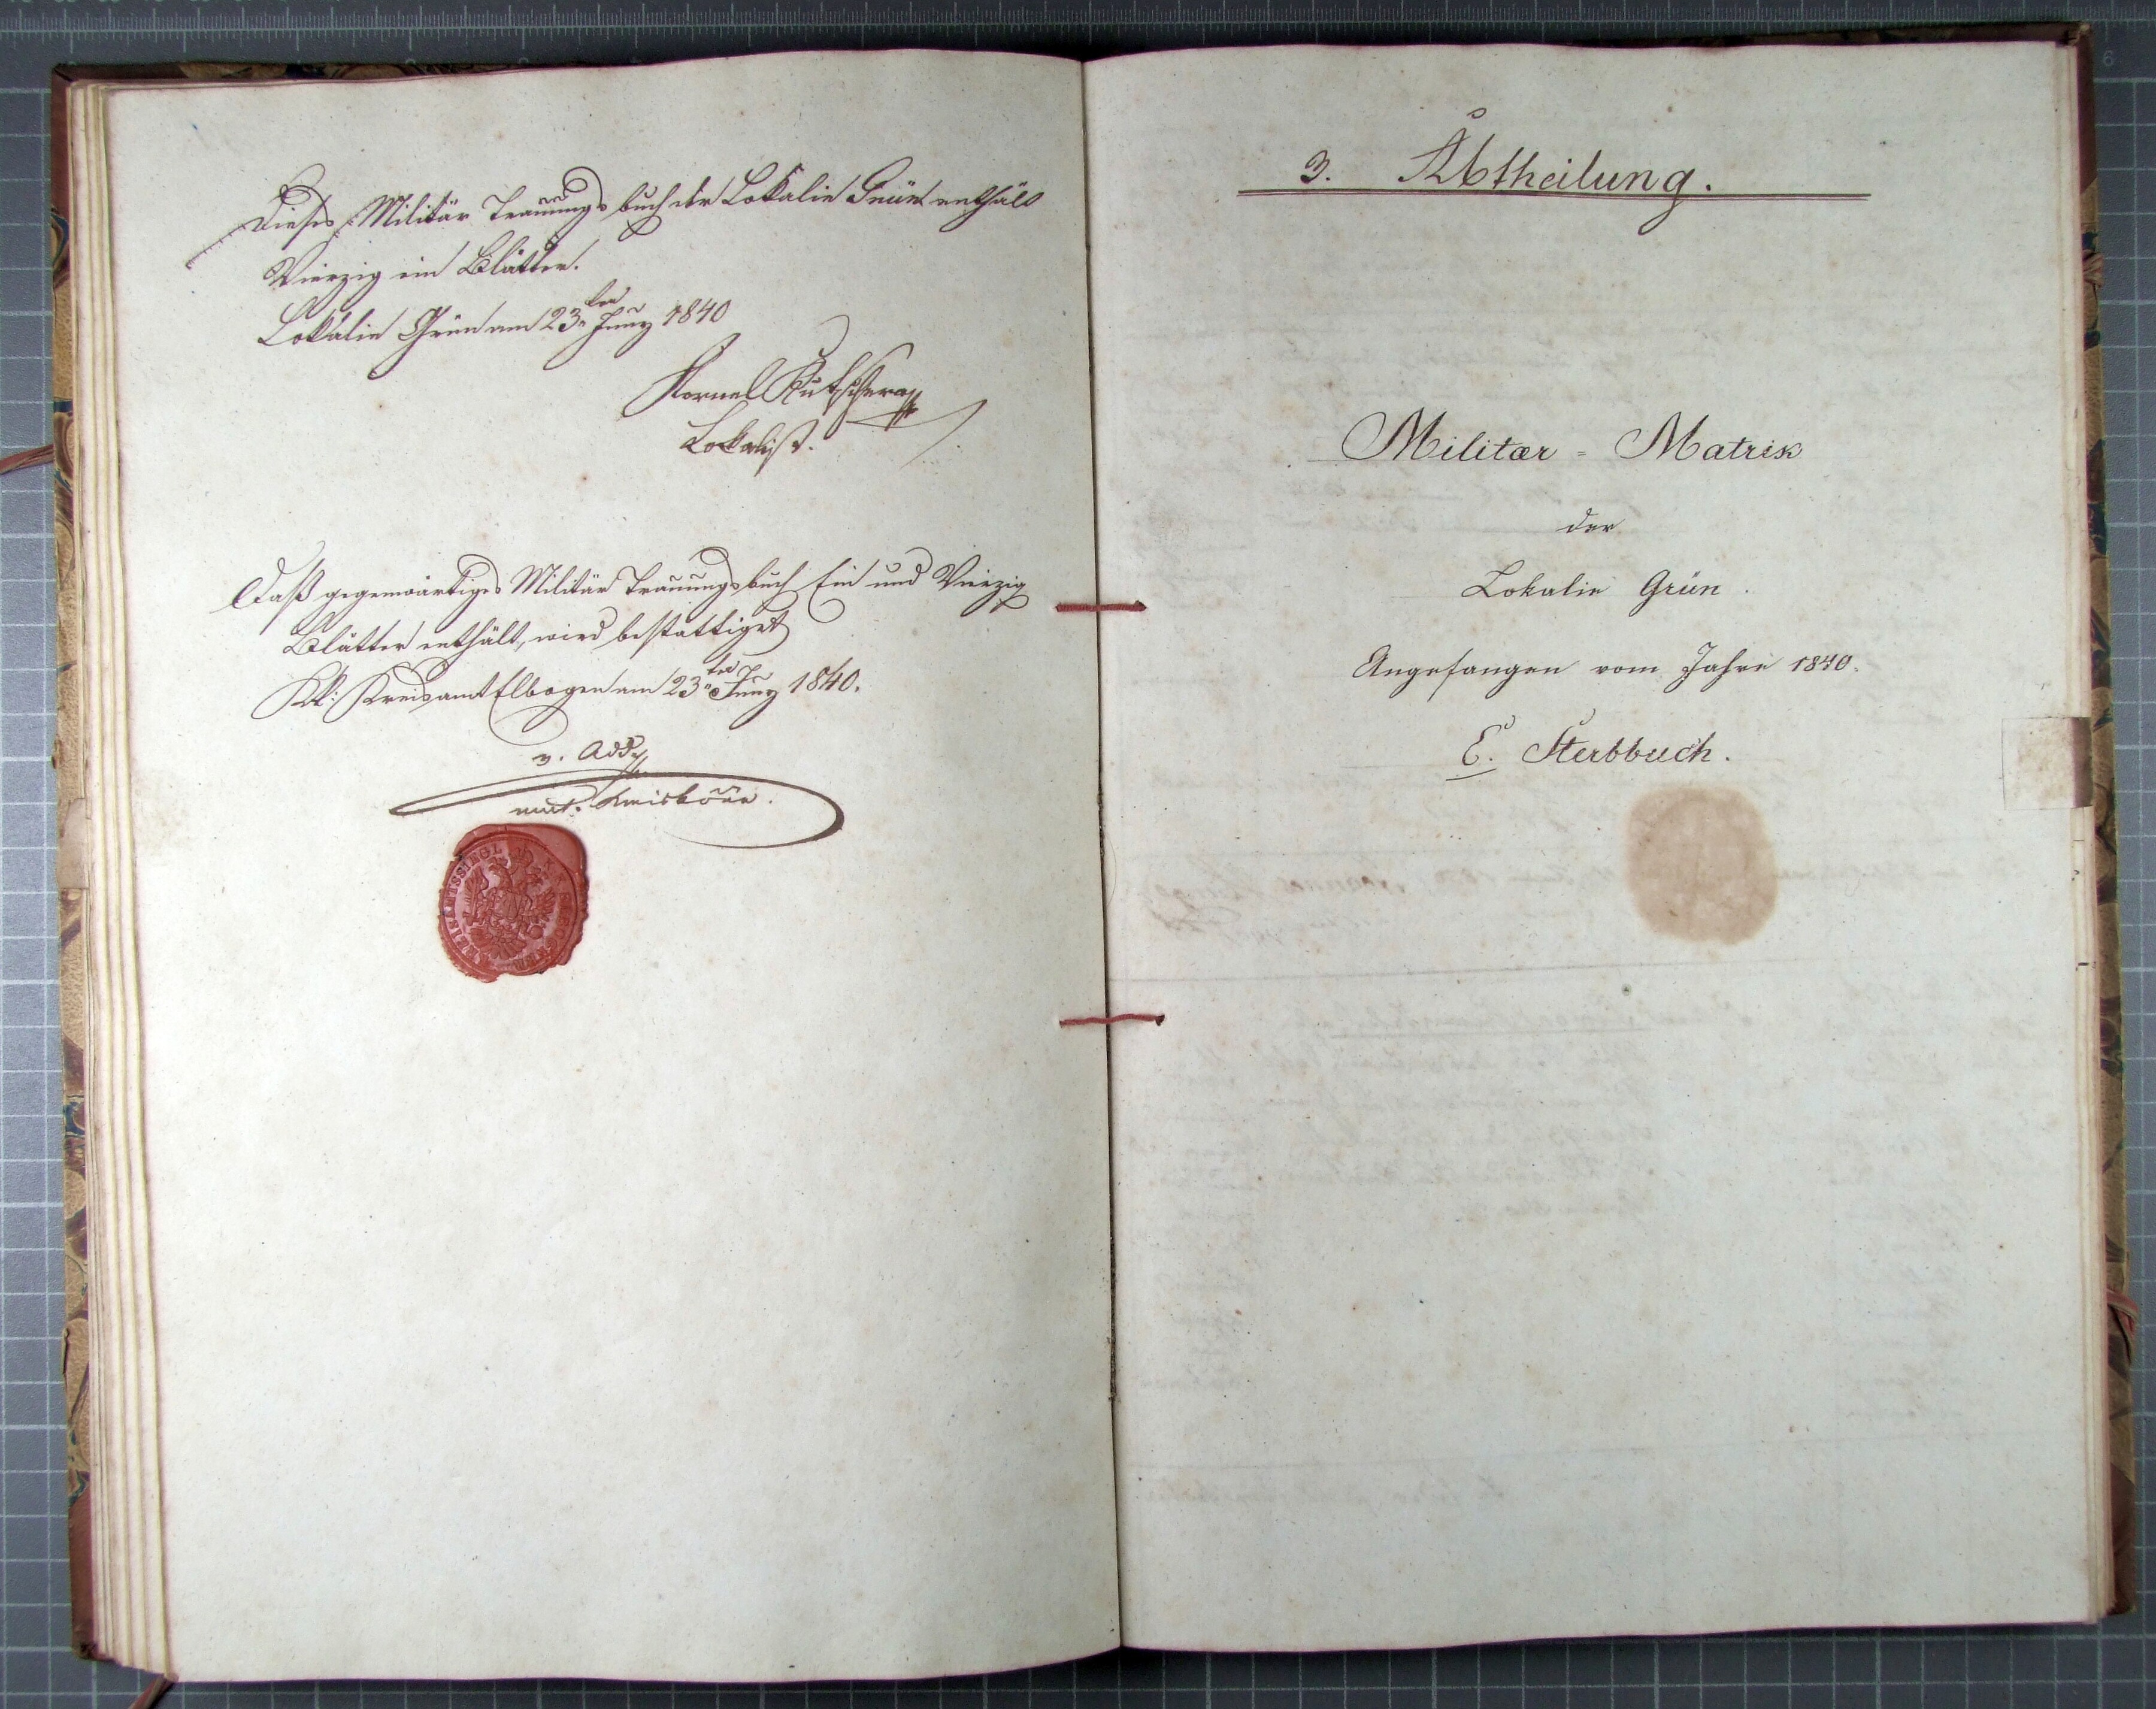 Dieses Militär Trauungsbuch der Lokalie Grün enthält
Vierzig ein Blätter.
Lokalie Grün am 23ten Juny 1840
Kornel Kutschera
Lokalist.
Daß gegenwärtiges Militär Trauungsbuch Ein und Vierzig
Blätter enthält, wird bestättiget
KK: Kreisamt Elbogen am 23ten Juny 1840.
3. Abtheilung.
Militær = Matrik
der
Lokalie Grün.
Angefangen vom Jahre 1840.
C. Sterbbuch.